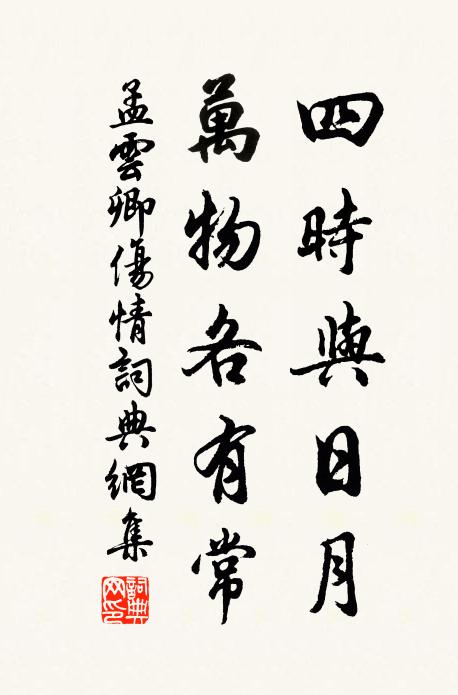 四時與日月
萬物各有常
孟雲卿傷情詞典網集
詞典網印